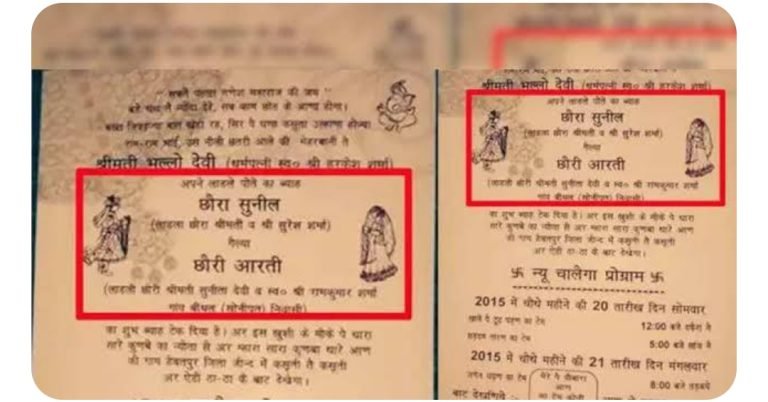 " सबतै पहल्यां गणेश महाराज की जय "
रै न्योंदा देरे, सब काम छोड के आणा होगा।
राम-राम भाई, उस नीली छतरी आले की मेहरबानी तै
श्रीमती भल्लो देवी (धर्मपत्नी स्व० श्री हरकेश शर्मा)
अपने लाडले पोते का ब्याह
छौरा सुनील
(लाडला छोरा श्रीमती व श्री सुरेश शर्मा)
गैल्या
छौरी आरती
(लाडली छोरी श्रीमती सुनीता देवी व स्व० श्री रामकुमार शर्मा
गांव बीधल (सोनीपत) निवासी)
का शुभ ब्याह टेक दिया है। अर इस खुशी के मौके पै थारा
सारे कुणबे का न्योता सै अर म्हारा सारा कुणबा थारे आण
की गाम हैबतपुर जिला जीन्द में कसुती तै कसुती
अर ऐडी ठा-ठा के बाट देखेगा।
श्रीमती भल्लो देवी (धर्मपत्नी स्व० श्री हरकेश शर्मा)
अपने लाडले पोते का ब्याह
छौरा सुनील
(लाडला छोरा श्रीमती व श्री सुरेश शर्मा)
गैल्या
छौरी आरती
(लाडली छोरी श्रीमती सुनीता देवी व स्व० श्री रामकुमार शर्मा
गांव बीधल (सोनीपत) निवासी)
का शुभ ब्याह टेक दिया है। अर इस खुशी के मौके पै थारा
सारे कुणबे का न्योता सै अर म्हारा सारा कुणबा थारे आण
की गाम हैबतपुर जिला जीन्द में कसुती तै कसुती
अर ऐडी ठा-ठा के बाट देखेगा।
卐 न्यू चालैगा प्रोग्राम 卐
2015 में चौथे महीने की 20 तारीख दिन सोमवार
12:00 बजे
5:00 बजे सांझ नै
2015 में चौथे महीने की 21 तारीख दिन मंगलवार
8:00 बजे तड़के